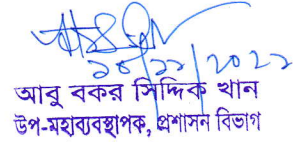 ১০/১১/২০২২
আবু বকর সিদ্দিক খান
উপ-মহাব্যবস্থাপক, প্রশাসন বিভাগ